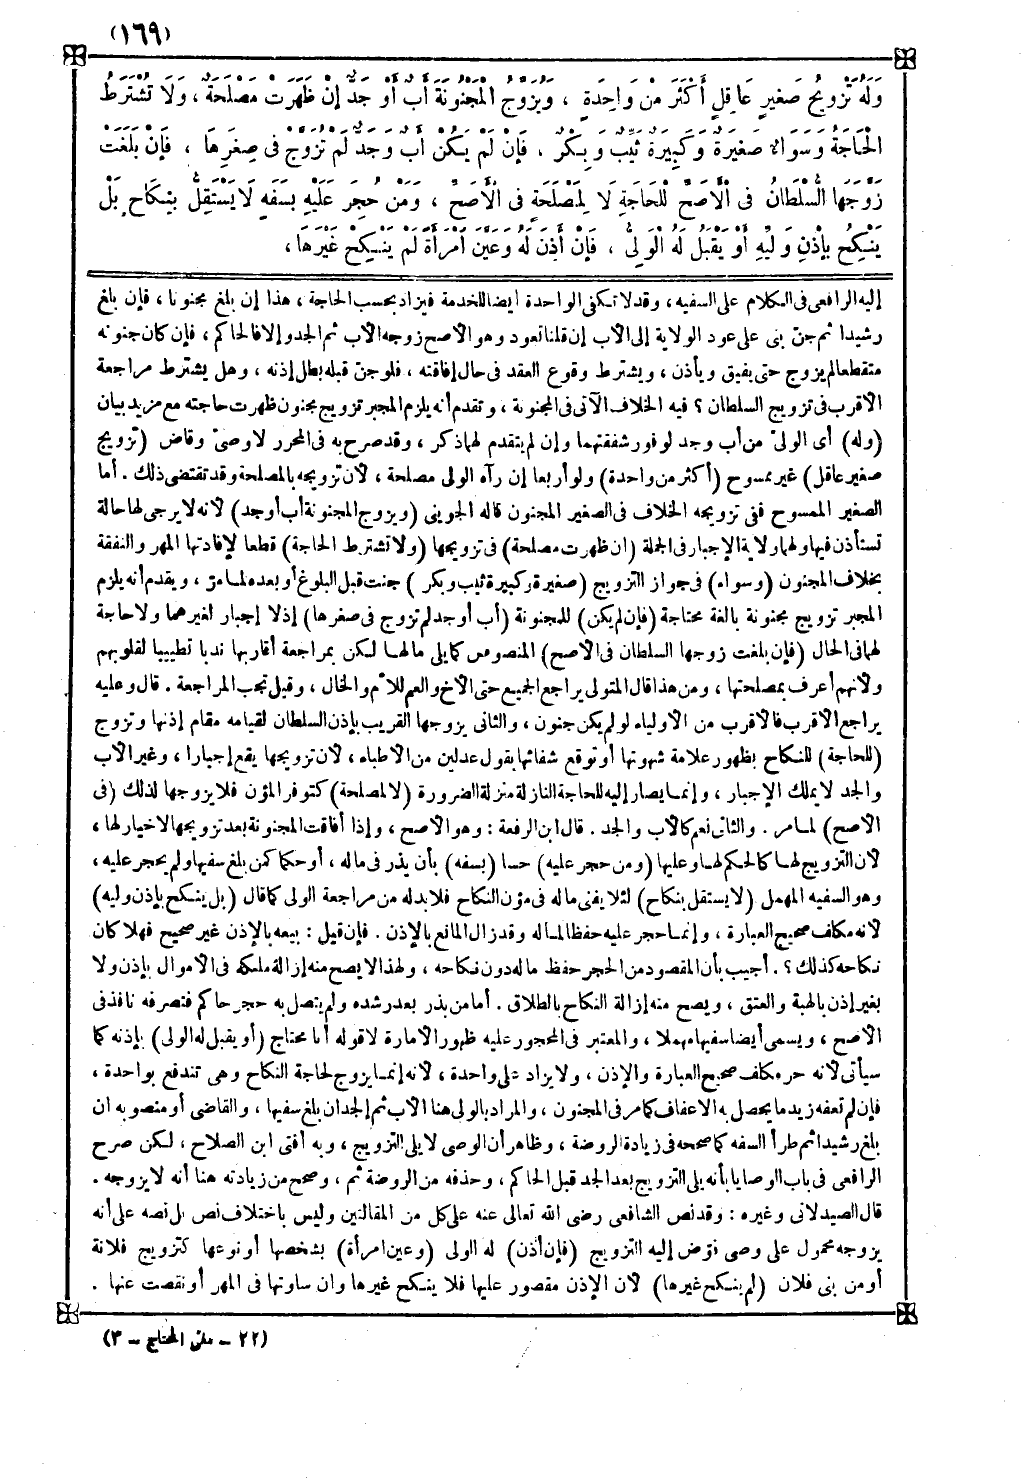 (١٦٩)
وَلَهُ تَزْوِيجُ صَغِيرٍ عَاقِلٍ أَكْثَرَ مِنْ وَاحِدَةٍ ، وَيُزَوِّجُ الْمَجْنُونَةَ أَبٌ أَوْ جَدٌّ إِنْ ظَهَرَتْ مَصْلَحَةٌ ، وَلَا تُشْتَرَطُ
الْحَاجَةُ وَسَوَاءٌ صَغِيرَةٌ وَكَبِيرَةٌ ثَيِّبٌ وَبِكْرٌ ، فَإِنْ لَمْ يَكُنْ أَبٌ وَجَدٌّ لَمْ تُزَوَّجْ فِى صِغَرِهَا ، فَإِنْ بَلَغَتْ
زَوَّجَهَا السُّلْطَانُ فِى الْأَصَحِّ لِلْحَاجَةِ لَا لِمَصْلَحَةٍ فِى الْأَصَحِّ ، وَمَنْ حُجِرَ عَلَيْهِ بِسَفَهٍ لَا يَسْتَقِلُّ بِنِكَاحٍ بَلْ
يَنْكِحُ بِإِذْنِ وَلِيِّهِ أَوْ يَقْبَلُ لَهُ الْوَلِىُّ ، فَإِنْ أَذِنَ لَهُ وَعَيَّنَ امْرَأَةً لَمْ يَنْكِحْ غَيْرَهَا ،
إليه الرافعى فى الكلام على السفيه ، وقد لا تكفى الواحدة أيضا للخدمة فيزاد بحسب الحاجة ، هذا إن بلغ مجنونا ، فإن بلغ
رشيدا ثم جن بنى على عود الولاية إلى الأب إن قلنا تعود وهو الأصح زوجه الأب ثم الجد وإلا فالحاكم ، فإن كان جنونه
متقطعا لم يزوج حتى يفيق ويأذن ، ويشترط وقوع العقد فى حال إفاقته ، فلو جن قبله بطل إذنه ، وهل يشترط مراجعة
الأقرب فى تزويج السلطان ؟ فيه الخلاف الآتى فى المجنونة ، وتقدم أنه يلزم المجبر تزويج مجنون ظهرت حاجته مع مزيد بيان
(وله) أى الولى من أب وجد لوفور شفقتهما وإن لم يتقدم لهما ذكر ، وقد صرح به فى المحرر لا وصى وقاض (تزويج
صغير عاقل) غير ممسوح (أكثر من واحدة) ولو أربعا إن رآه الولى مصلحة ، لأن تزويجه بالمصلحة وقد تقتضى ذلك . أما
الصغير الممسوح ففى تزويجه الخلاف فى الصغير المجنون قاله الجوينى (ويزوج المجنونة أب أو جد) لأنه لا يرجى لها حالة
تستأذن فيها ولهما ولاية الإجبار فى الجملة (إن ظهرت مصلحة) فى تزويجها (ولا تشترط الحاجة) قطعا لإفادتها المهر والنفقة
بخلاف المجنون (وسواء) فى جواز التزويج (صغيرة وكبيرة ثيب وبكر) جنت قبل البلوغ أو بعده لما مر ، ويقدم أنه يلزم
المجبر تزويج مجنونة بالغة محتاجة (فإن لم يكن) للمجنونة (أب أو جد لم تزوج فى صغرها) إذ لا إجبار لغيرهما ولا حاجة
لهما فى الحال (فإن بلغت زوجها السلطان فى الأصح) المنصوص كما يلى مالها لكن بمراجعة أقاربها ندبا تطييبا لقلوبهم
ولأنهم أعرف بمصلحتها ، ومن هذا قال المتولى يراجع الجميع حتى الأخ والعم للأم والخال ، وقيل تجب المراجعة . قال وعليه
يراجع الأقرب فالأقرب من الأولياء لو لم يكن جنون ، والثانى يزوجها القريب بإذن السلطان لقيامه مقام إذنها وتزوج
(للحاجة) للنكاح بظهور علامة شهوتها أو توقع شفائها بقول عدلين من الأطباء ، لأن تزويجها يقع إجبارا ، وغير الأب
والجد لا يملك الإجبار ، وإنما يصار إليه للحاجة النازلة منزلة الضرورة (لا لمصلحة) كتوفر المؤن فلا يزوجها لذلك (فى
الأصح) لما مر . والثانى نعم كالأب والجد . قال ابن الرفعة : وهو الأصح ، وإذا أفاقت المجنونة بعد تزويجها لا خيار لها ،
لأن التزويج لها كالحكم لها وعليها (ومن حجر عليه) حسا (بسفه) بأن بذر فى ماله ، أو حكما كمن بلغ سفيها ولم يحجر عليه ،
وهو السفيه المهمل (لا يستقل بنكاح) لئلا يفنى ماله فى مؤن النكاح فلا بد له من مراجعة الولى كما قال (بل ينكح بإذن وليه)
لأنه مكلف صحيح العبارة ، وإنما حجر عليه حفظا لماله وقد زال المانع بالإذن . فإن قيل : بيعه بالإذن غير صحيح فهلا كان
نكاحه كذلك ؟ . أجيب بأن المقصود من الحجر حفظ ماله دون نكاحه ، ولهذا لا يصح منه إزالة ملكه فى الأموال بإذن ولا
بغير إذن بالهبة والعتق ، ويصح منه إزالة النكاح بالطلاق . أما من بذر بعد رشده ولم يتصل به حجر حاكم فتصرفه نافذ فى
الأصح ، ويسمى أيضا سفيها مهملا ، والمعتبر فى المحجور عليه ظهور الأمارة لا قوله أنا محتاج (أو يقبل له الولى) بإذنه كما
سيأتى لأنه حر مكلف صحيح العبارة والإذن ، ولا يزاد على واحدة ، لأنه إنما يزوج لحاجة النكاح وهى تندفع بواحدة ،
فإن لم تعفه زيد ما يحصل به الاعفاف كما مر فى المجنون ، والمراد بالولى هنا الأب ثم الجد ان بلغ سفيها ، والقاضى أو منصوبه ان
بلغ رشيدا ثم طرأ السفه كما صححه فى زيادة الروضة ، وظاهر أن الوصى لا يلى التزويج ، وبه أفتى ابن الصلاح ، لكن صرح
الرافعى فى باب الوصايا بأنه يلى التزويج بعد الجد قبل الحاكم ، وحذفه من الروضة ثم ، وصحح من زيادته هنا أنه لا يزوجه .
قال الصيدلانى وغيره : وقد نص الشافعى رضى الله تعالى عنه على كل من المقالتين وليس باختلاف نص بل نصه على أنه
يزوجه محمول على وصى فوّض إليه التزويج (فإن أذن) له الولى (وعين امرأة) بشخصها أو نوعها كتزويج فلانة
أو من بنى فلان (لم ينكح غيرها) لأن الإذن مقصور عليها فلا ينكح غيرها وان ساوتها فى المهر أو نقصت عنها .
(٢٢ - مغنى المحتاج - ٣)